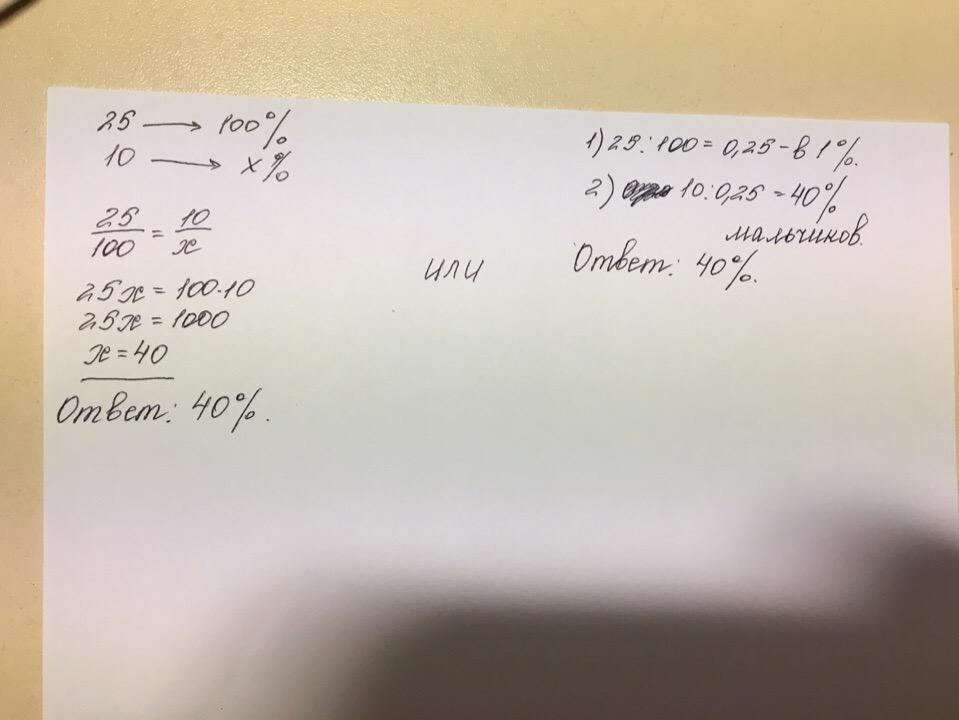 25 → 100%
10 → x%
25/100 = 10/x
25x = 100·10
25x = 1000
x = 40
Ответ: 40%.
или
1) 25:100 = 0,25 - в 1%.
2) 10:0,25 = 40%
мальчинов.
Ответ: 40%.